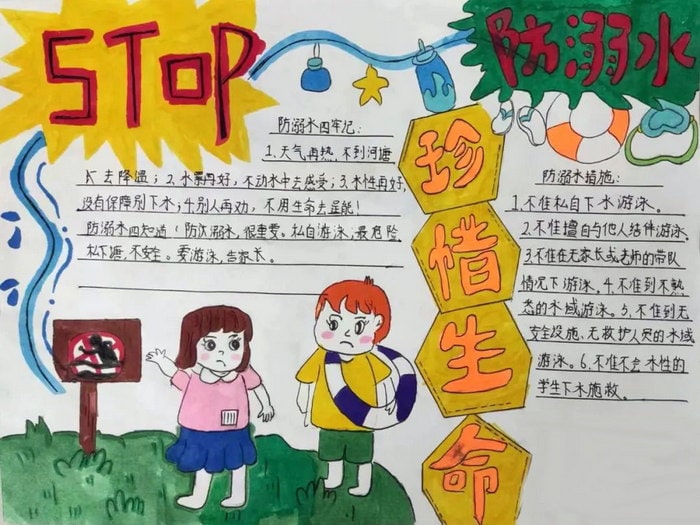 STOP
防溺水
防溺水四牢记:
1.天气再热,不到河塘
去降温;2.水景再好,不动水中去感受;3.水性再好,
没有保障别下水;4.别人再劝,不用生命去逞能!
防溺水四知道(防汏溺水,很重要。私自游泳,最危险。
私下塘,不安全。要游泳,告家长。
珍惜生命
防溺水措施:
1.不准私自下水游泳。
2.不准擅自与他人结伴游泳。
3.不准在无家长或老师的带队
情况下游泳。4.不准到不熟
悉的水域游泳。5.不准到无
安全设施、无救护人员的水域
游泳。6.不准不会水性的
学生下水施救。